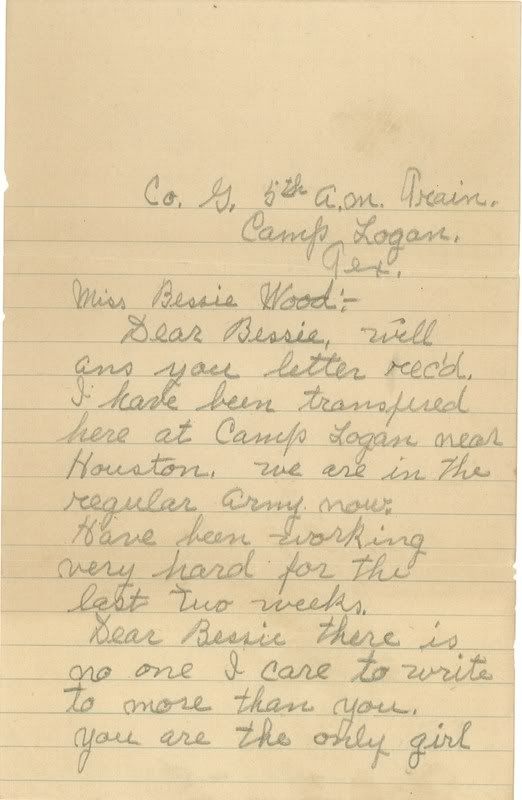 Co. G. 5th a.m. Train.
Camp Logan.
Tex.
Miss Bessie Wood:-
Dear Bessie, will
ans you letter rec'd.
I have been transfired
here at Camp Logan near
Houston. we are in the
regular army now.
Have been working
very hard for the
last two weeks.
Dear Bessie there is
no one I care to write
to more than you.
you are the only girl